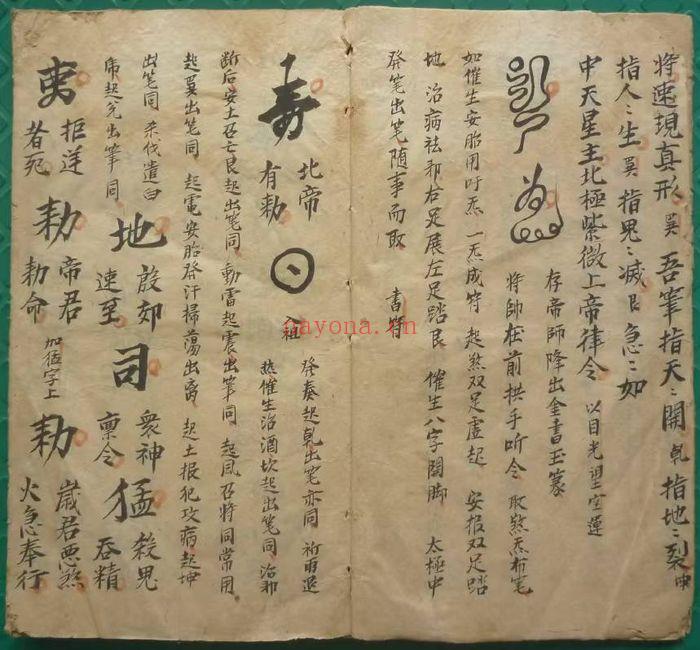 将速現真形 巽 吾筆指天〻開 乹 指地〻裂 坤
指人〻生 巽 指鬼〻滅 艮 急〻如
中天星主北極紫微上帝律令 以目光望空運
存帝師降出金書玉篆
将帥在前拱手听令 取煞炁布笔
如催生安胎用吁炁 一炁成符 起煞双足虚起 安报双足踏
地 治病祛邪右足展左足踏艮 催生八字開脚 太極中
發笔出笔随事而取 書符
壽 北帝有勅
癸奏起乹出笔亦同 祈雨退
热催生治酒坎起出笔同 治邪
断后安土召亡艮起出笔同 動雷起震出筆同 起風召将同常用
起巽出笔同 起電安胎發汗掃蕩出离 起土报犯攻病起坤
出笔同 杀伐遣白
虎起兑出筆同 地 殷郊速至 司 衆神禀令 猛 殺鬼吞精
拒逆者死 勅 帝君勅命 加猛字上 勅 歲君悪煞火急奉行
nayona.cn